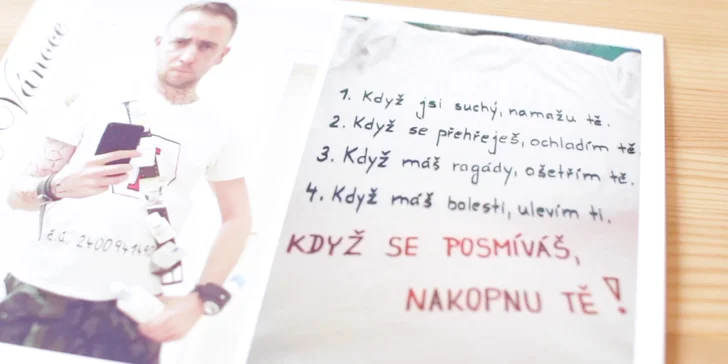 Vánoce
č.ú. 2400941490
1. Když jsi suchý, namažu tě.
2. Když se přehřeješ, ochladím tě.
3. Když máš ragády, ošetřím tě.
4. Když máš bolesti, ulevím ti.
KDYŽ SE POSMÍVÁŠ,
NAKOPNU TĚ!